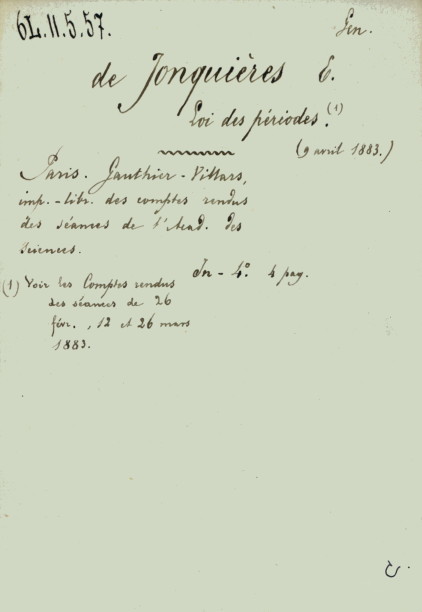 6L.11.5.57.
Gen.
de Jonquières E.
Loi des périodes.(1)
(9 avril 1883.)
Paris. Gauthier-Villars,
imp.-libr. des comptes rendus
des séances de l'Acad. des
Sciences.
In-4º. 4 pag.
(1) Voir les Comptes rendus
des séances de 26
févr., 12 et 26 mars
1883.